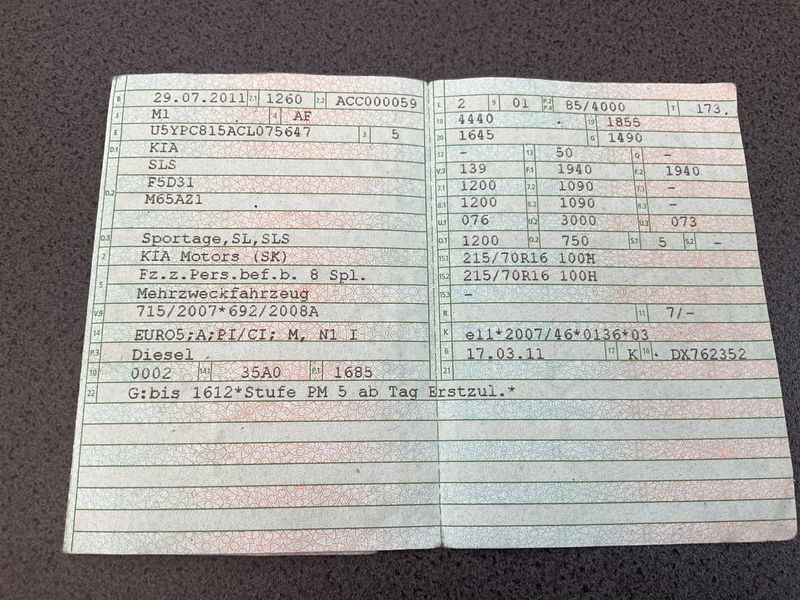 B 29.07.2011 2.1 1260 2.2 ACC000059
J M1 4 AF
E U5YPC815ACL075647 3 5
D.1 KIA
SLS
D.2 F5D31
M65AZ1
D.3 Sportage,SL,SLS
2 KIA Motors (SK)
5 Fz.z.Pers.bef.b. 8 Spl.
Mehrzweckfahrzeug
V.9 715/2007*692/2008A
14 EURO5;A;PI/CI; M, N1 I
P.3 Diesel
10 0002 14.1 35A0 P.1 1685
22 G:bis 1612*Stufe PM 5 ab Tag Erstzul.*
L 2 9 01 P.2 P.4 85/4000 T 173.
18 4440 19 1855
20 1645 G 1490
12 - 13 50 Q -
V.7 139 F.1 1940 F.2 1940
7.1 1200 7.2 1090 7.3 -
8.1 1200 8.2 1090 8.3 -
U.1 076 U.2 3000 U.3 073
O.1 1200 O.2 750 S.1 5 S.2 -
15.1 215/70R16 100H
15.2 215/70R16 100H
15.3 -
R 11 7/-
K e11*2007/46*0136*03
6 17.03.11 17 K 16 DX762352
21